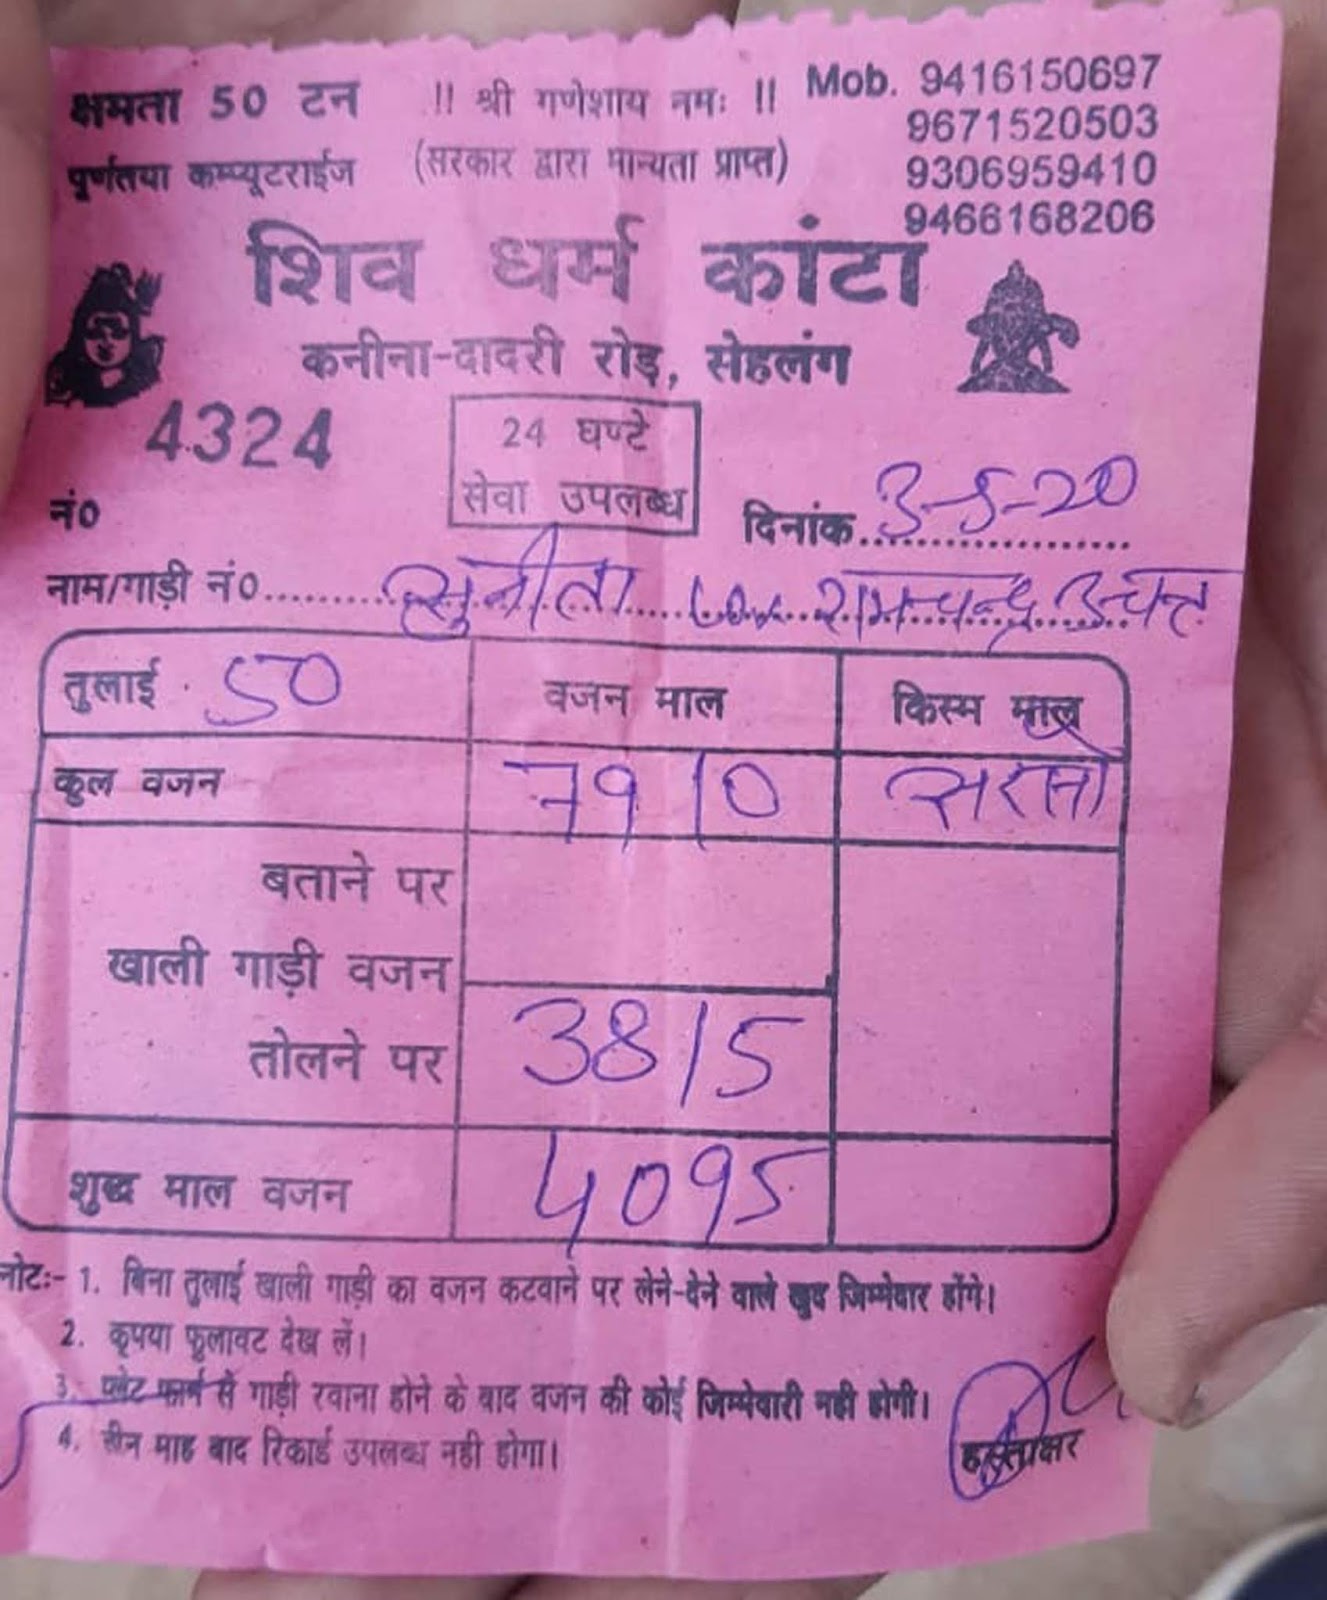 क्षमता 50 टन !! श्री गणेशाय नमः !! Mob. 9416150697
9671520503
पूर्णतया कम्प्यूटराईज (सरकार द्वारा मान्यता प्राप्त) 9306959410
9466168206
शिव धर्म कांटा
कनीना-दादरी रोड़, सेहलंग
4324
24 घण्टे
सेवा उपलब्ध
नं0 दिनांक 3-5-20
नाम/गाड़ी नं0 सुनीता रामचन्द्र
तुलाई 50 वजन माल किस्म माल
कुल वजन 7910 सरसो
बताने पर
खाली गाड़ी वजन
तोलने पर 3815
शुद्ध माल वजन 4095
नोटः- 1. बिना तुलाई खाली गाड़ी का वजन कटवाने पर लेने-देने वाले खुद जिम्मेवार होंगे।
2. कृपया फूलावट देख लें।
3. प्लेट फार्म से गाड़ी रवाना होने के बाद वजन की कोई जिम्मेवारी नही होगी।
4. तीन माह बाद रिकार्ड उपलब्ध नही होगा।
हस्ताक्षर